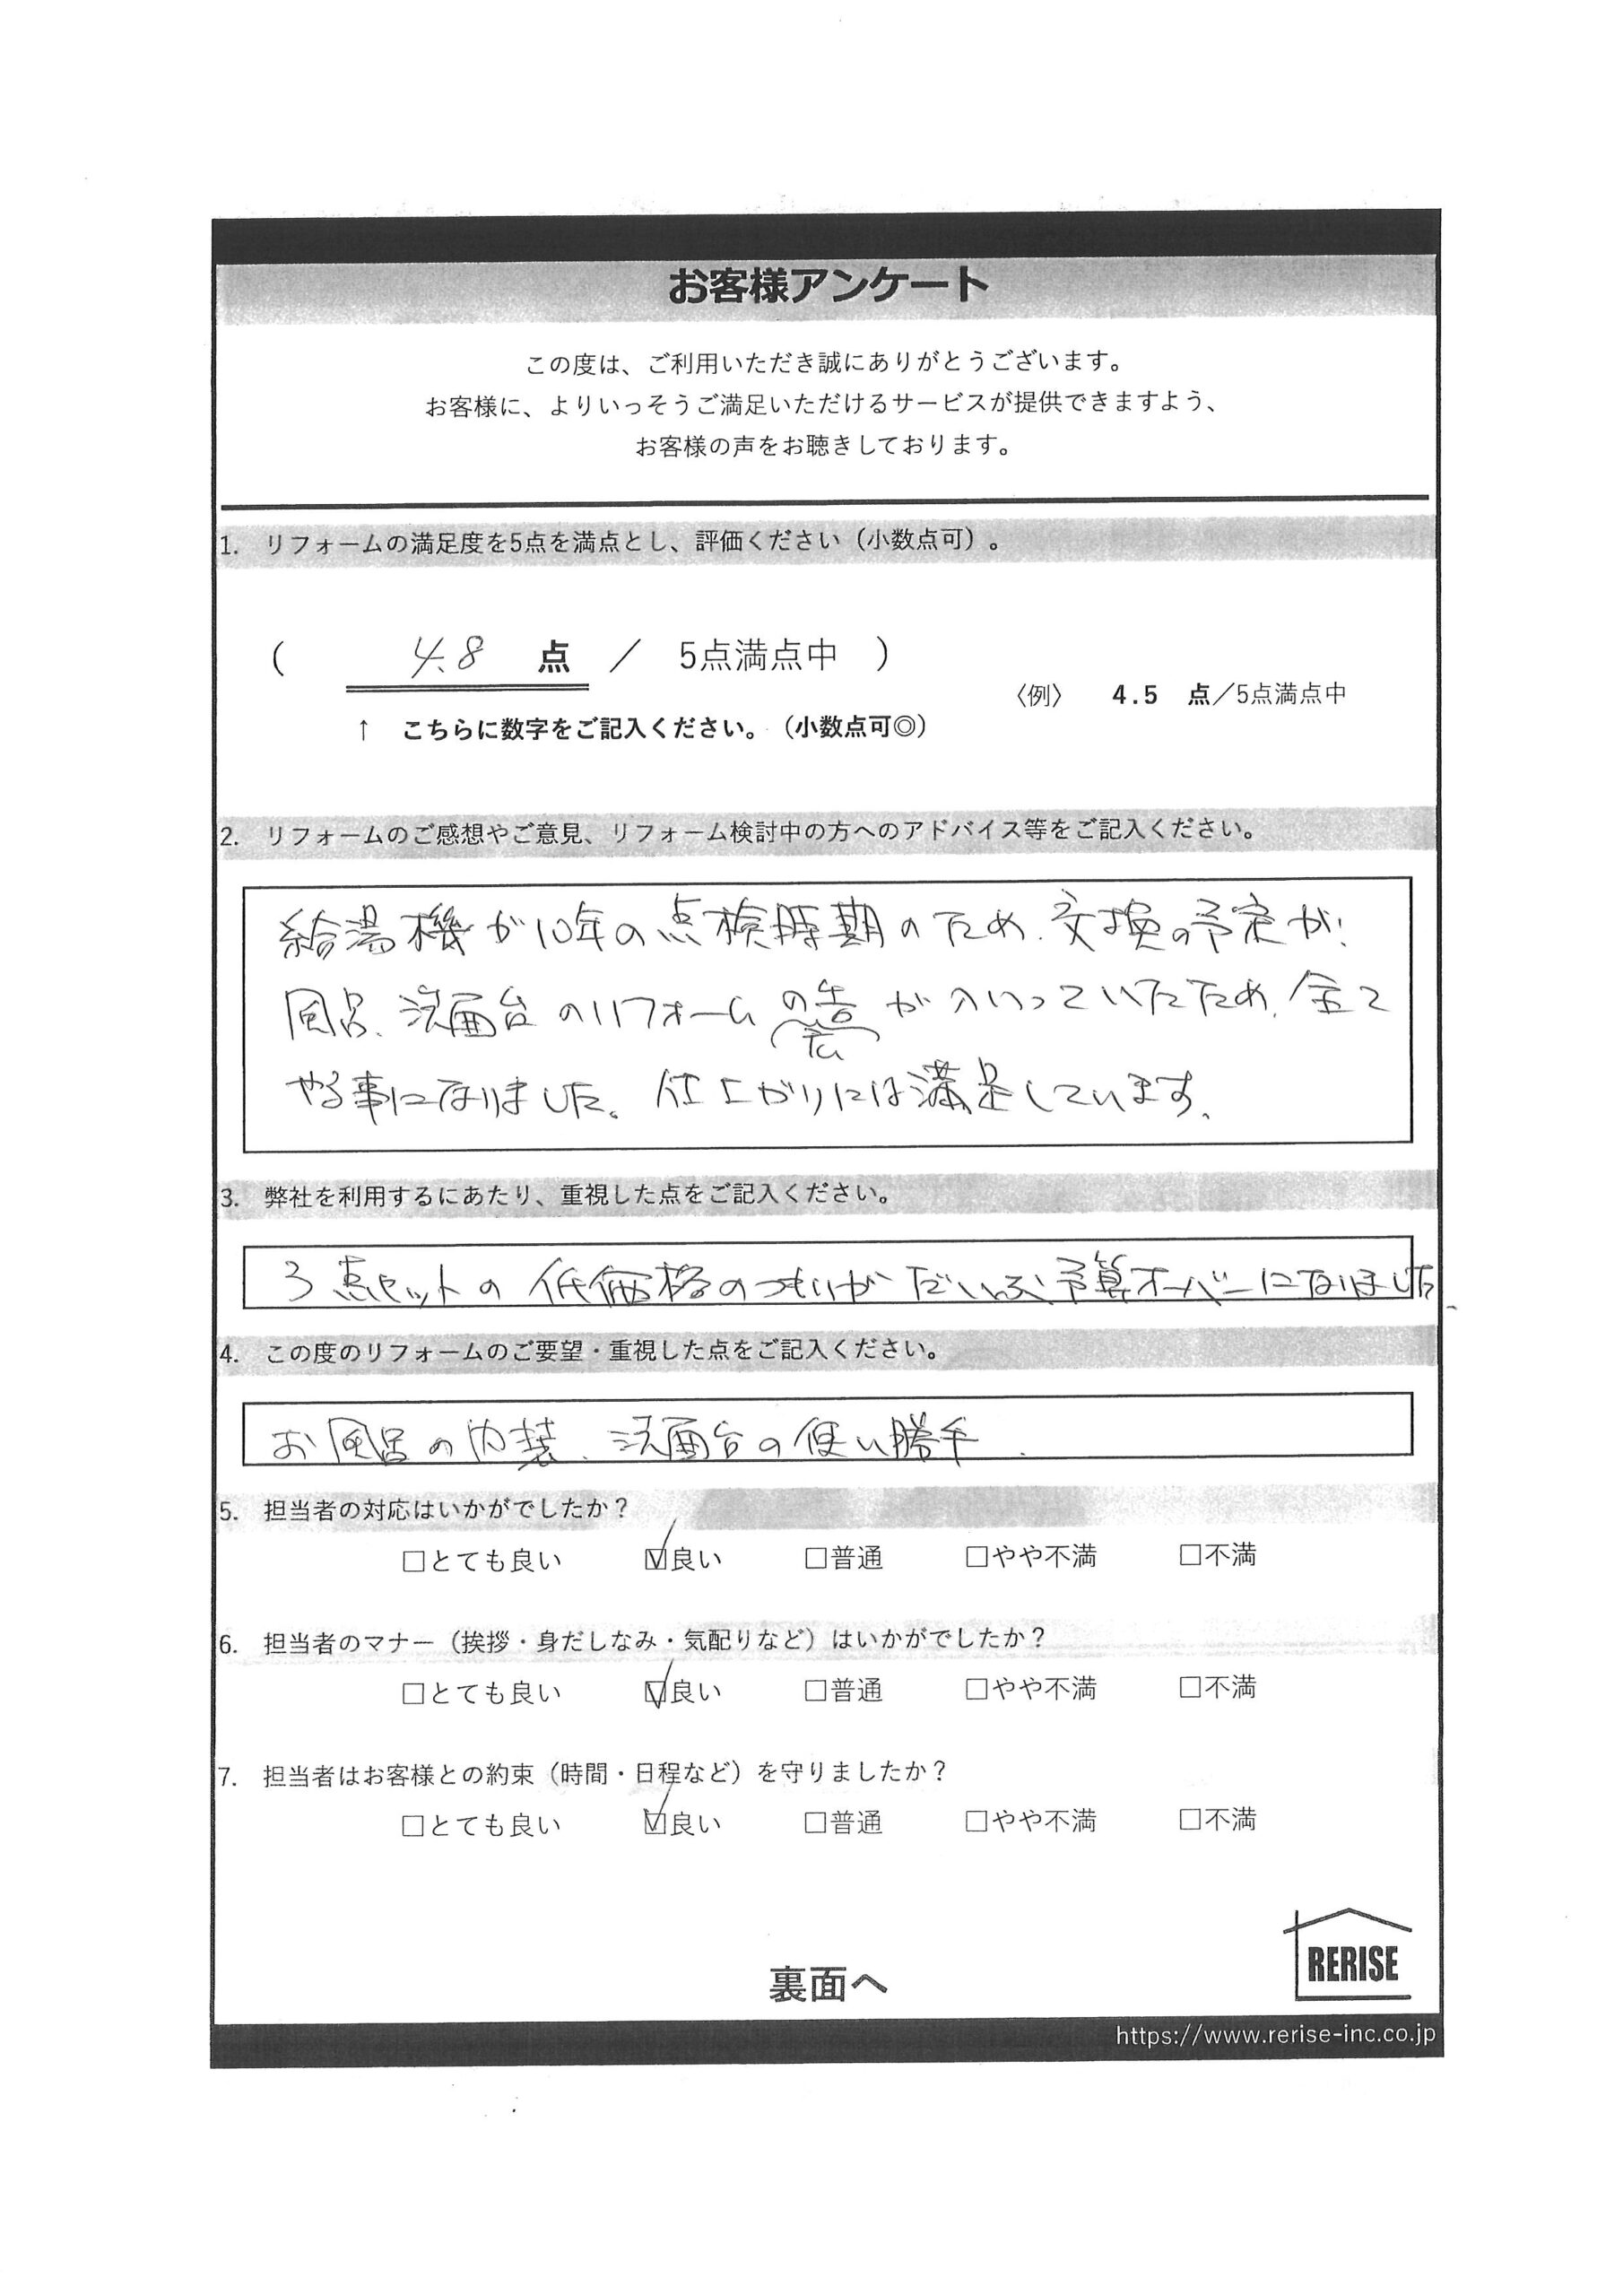 お客様アンケート
この度は、ご利用いただき誠にありがとうございます。
お客様に、よりいっそうご満足いただけるサービスが提供できますよう、
お客様の声をお聴きしております。
1. リフォームの満足度を5点を満点とし、評価ください（小数点可）。
（ 4.8 点 ／ 5点満点中 ）
〈例〉 4.5 点／5点満点中
↑ こちらに数字をご記入ください。（小数点可◎）
2. リフォームのご感想やご意見、リフォーム検討中の方へのアドバイス等をご記入ください。
給湯機が10年の点検時期のため、交換の予定が!
風呂、洗面台のリフォームの が入いっていたため、全て
やる事になりました。仕上がりには満足しています。
3. 弊社を利用するにあたり、重視した点をご記入ください。
3点セットの低価格のつもりがだいぶ予算オーバーになりました、
4. この度のリフォームのご要望・重視した点をご記入ください。
お風呂の内装、洗面台の使い勝手.
5. 担当者の対応はいかがでしたか？
□とても良い ☑良い □普通 □やや不満 □不満
6. 担当者のマナー（挨拶・身だしなみ・気配りなど）はいかがでしたか？
□とても良い ☑良い □普通 □やや不満 □不満
7. 担当者はお客様との約束（時間・日程など）を守りましたか？
□とても良い ☑良い □普通 □やや不満 □不満
裏面へ
RERISE
https://www.rerise-inc.co.jp